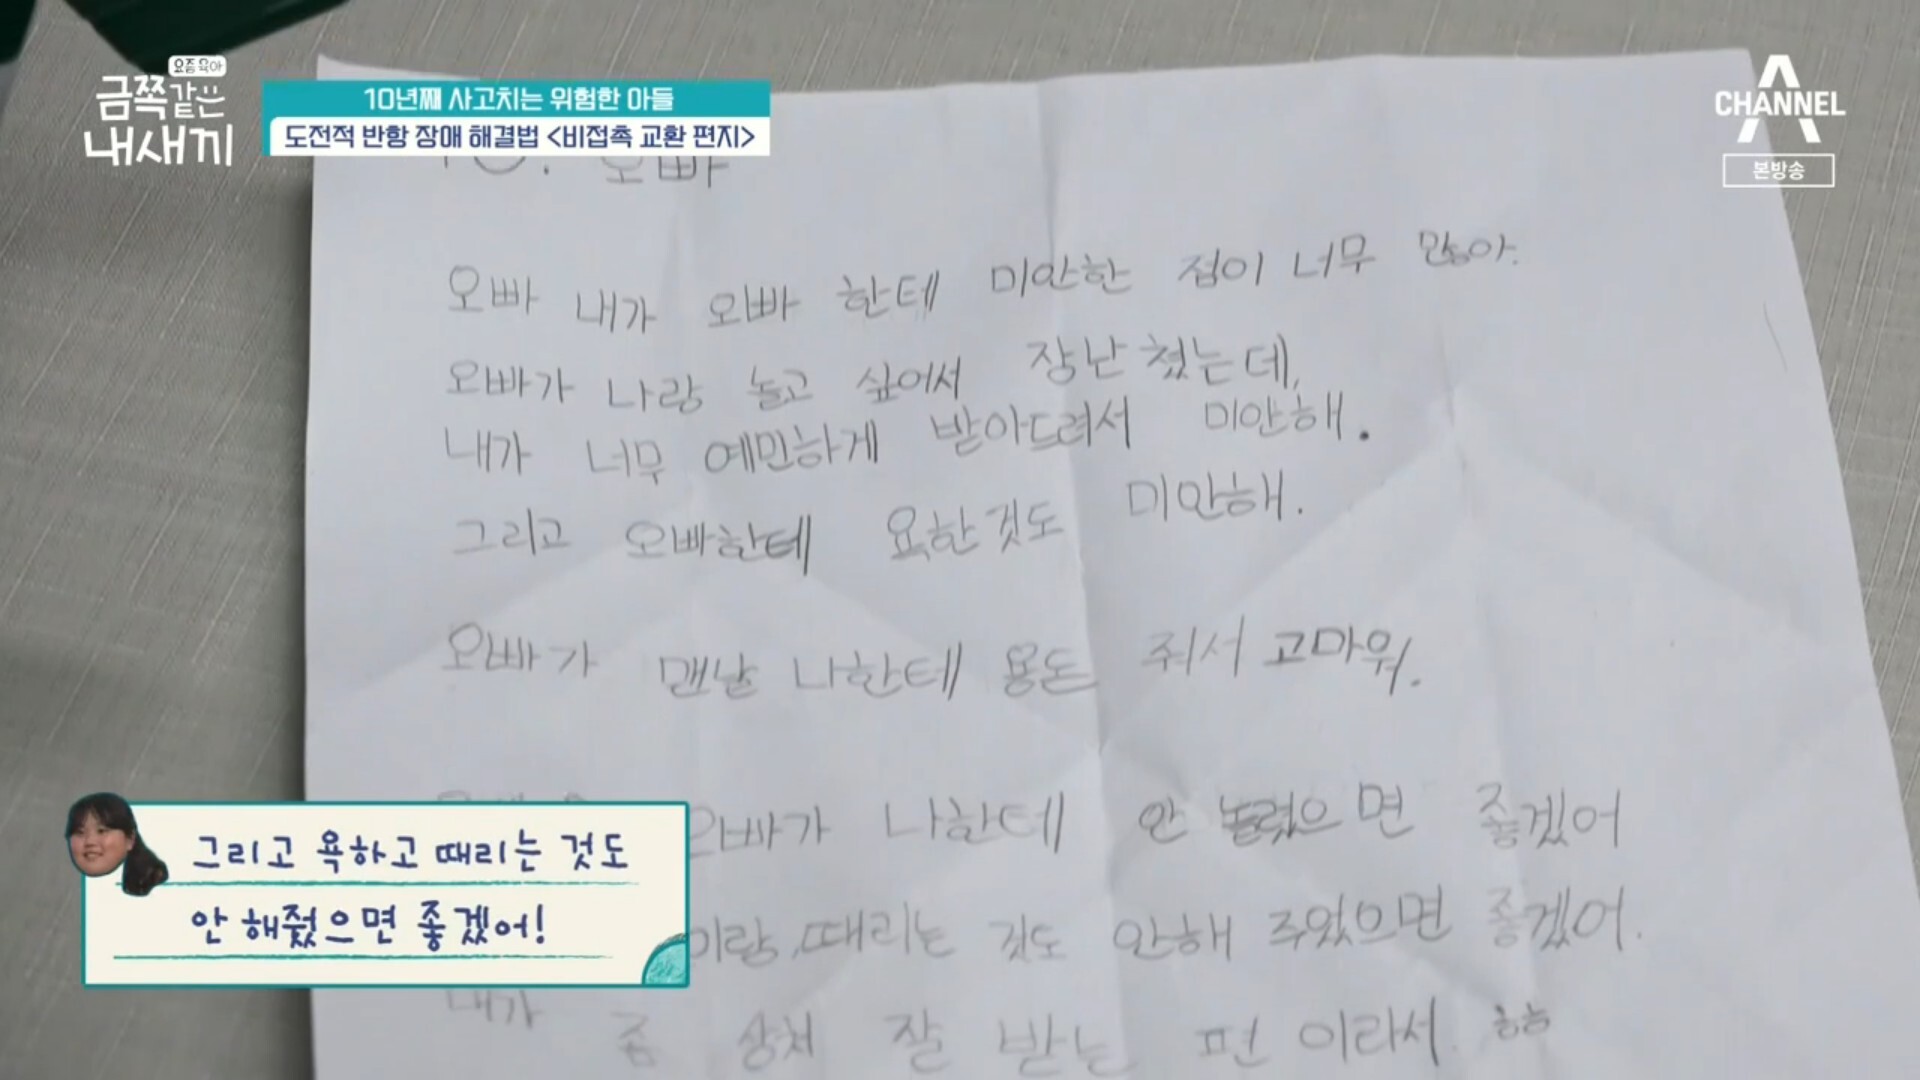 요즘 육아
금쪽같은
내새끼
10년째 사고치는 위험한 아들
도전적 반항 장애 해결법 <비접촉 교환 편지>
CHANNEL A
본방송
오빠
오빠 내가 오빠 한테 미안한 점이 너무 많아.
오빠가 나랑 놀고 싶어서 장난 쳤는데,
내가 너무 예민하게 받아드려서 미안해.
그리고 오빠한테 욕한것도 미안해.
오빠가 맨날 나한테 용돈 줘서 고마워.
오빠가 나한테 안 놀렸으면 좋겠어
이랑, 때리는 것도 안해 주었으면 좋겠어.
내가 좀 상처 잘 받는 편 이라서. ㅎㅎ
그리고 욕하고 때리는 것도
안 해줬으면 좋겠어!